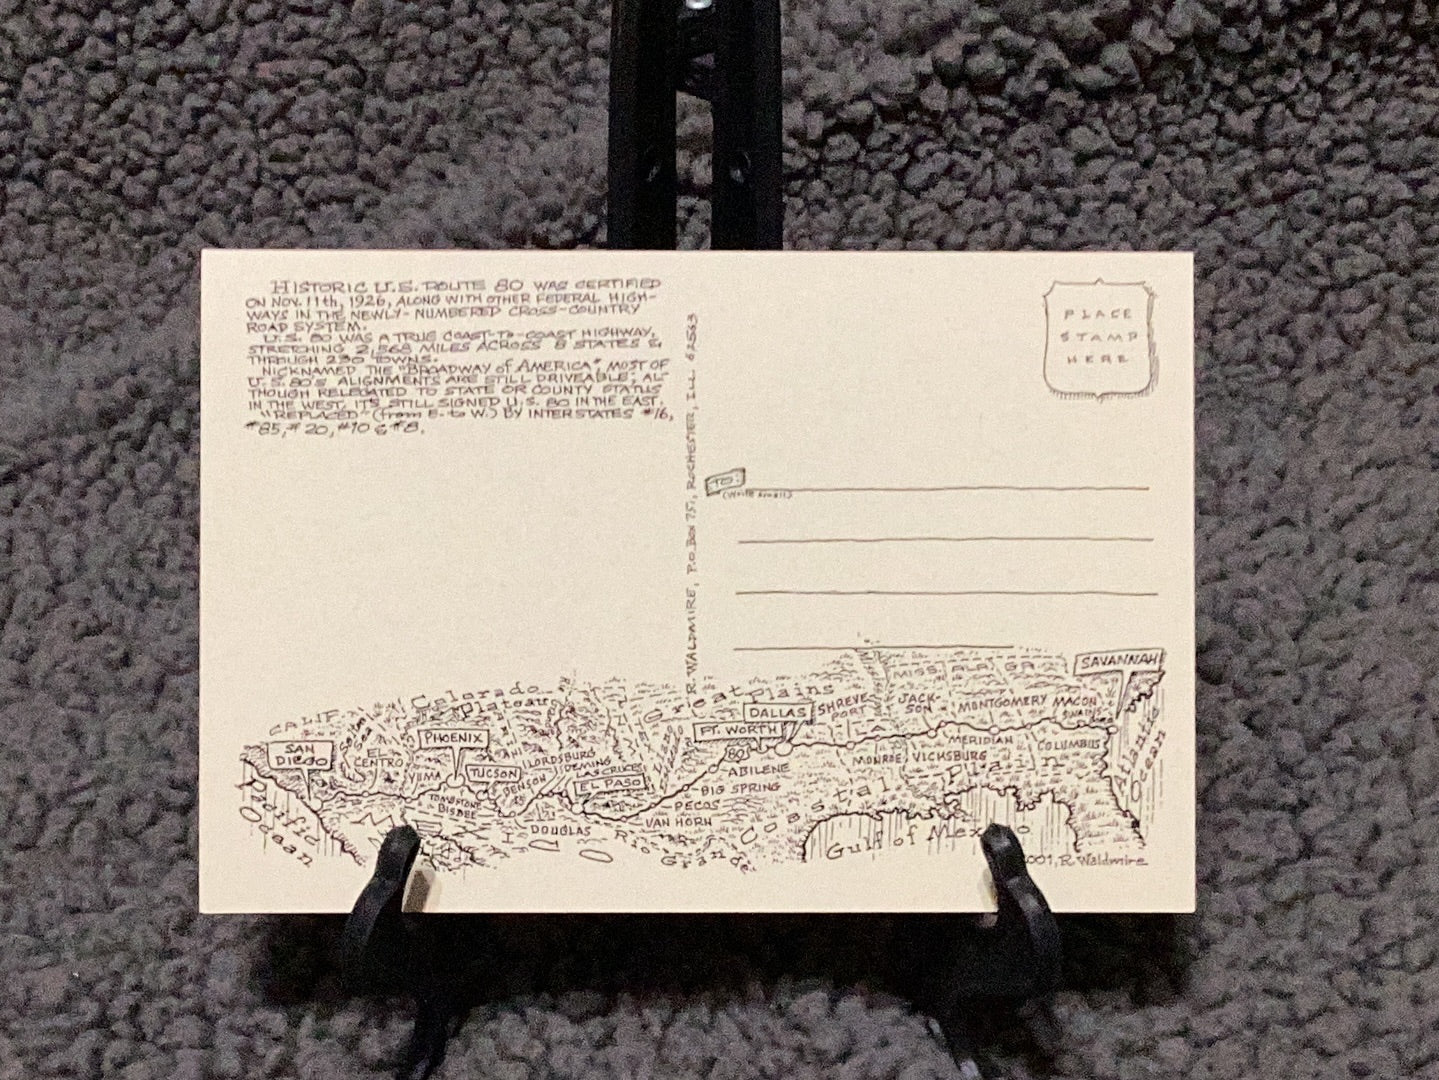 HISTORIC U.S. ROUTE 80 WAS CERTIFIED
ON NOV. 11th, 1926, ALONG WITH OTHER FEDERAL HIGH-
WAYS IN THE NEWLY-NUMBERED CROSS-COUNTRY
ROAD SYSTEM.
U.S. 80 WAS A TRUE COAST-TO-COAST HIGHWAY,
STRETCHING 2,568 MILES ACROSS 8 STATES &
THROUGH 230 TOWNS.
NICKNAMED THE "BROADWAY of AMERICA", MOST OF
U.S. 80'S ALIGNMENTS ARE STILL DRIVEABLE; AL-
THOUGH RELEGATED TO STATE OR COUNTY STATUS
IN THE WEST, IT'S STILL SIGNED U.S. 80 IN THE EAST.
"REPLACED" (from E. to W.) BY INTERSTATES #16,
#85, #20, #10 & #8.
R. WALDMIRE, P.O. Box 751, ROCHESTER, ILL. 62563
PLACE
STAMP
HERE
TO:
(Write small)
CALIF
Colorado
Plateau
Great Plains
MISS. ALA. GA.
SAVANNAH
SAN
DIEGO
Salton Sea
EL
CENTRO
YUMA
PHOENIX
TUCSON
BENSON
TOMBSTONE
BISBEE
LORDSBURG
DEMING
LAS CRUCES
EL PASO
DOUGLAS
VAN HORN
PECOS
BIG SPRING
ABILENE
80
FT. WORTH
DALLAS
SHREVE-
PORT
MONROE
VICKSBURG
JACK-
SON
MERIDIAN
MONTGOMERY
COLUMBUS
MACON
Pacific
Ocean
Rio Grande
Coastal Plain
Gulf of Mexico
Atlantic
Ocean
2001, R. Waldmire